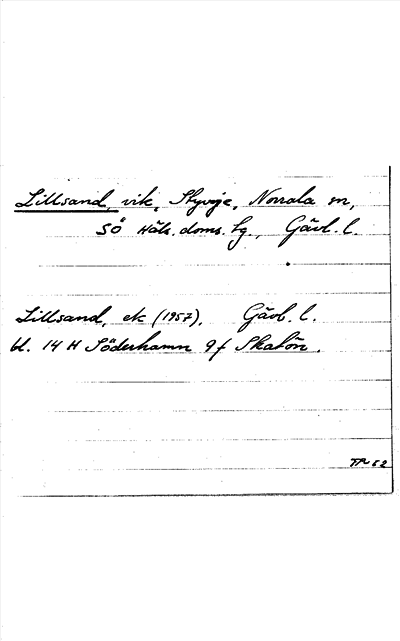 Lillsand, vik, Styvje, Norrala sn,
SÖ Häls. doms. tg., Gävl. l.
Lillsand, ek (1957). Gävl. l.
bl. 14 H Söderhamn 9f Skatön.
62